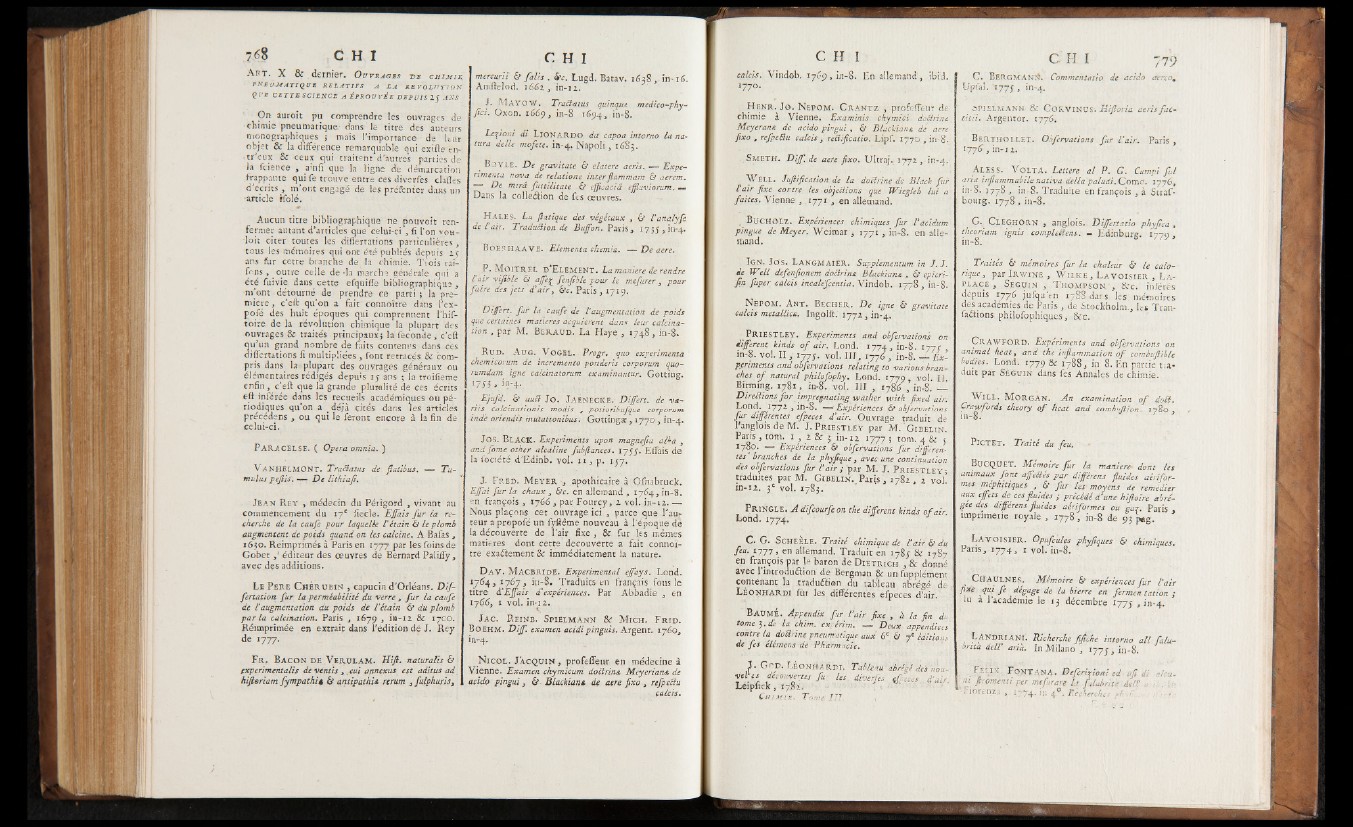 768 C H I
ART. X & dernier. OUVRAGES DE CHIMIE
PNEUMATIQUE RELATIFS A LA RÉVOLUTION
QUE CETTE SCIENCE A ÉPROUVÉE DEPUIS 25 ANS
On auroit pu comprendre les ouvrages de
chimie pneumatique dans le titre des auteurs
monographiques ; mais l'importance de leur
objet & la différence remarquable qui exiſte en-
tr'eux & ceux qui traitent d'autres parties de
la ſcience , ainſi que la ligne de démarcation
frappante qui ſe trouve entre ces diverſes claſſes
d'écrits , m'ont engagé de les préſenter dans un
article iſolé.
Aucun titre bibliographique ne pouvoit ren-
fermer autant d'articles que celui-ci , ſi l'on vou-
loit citer toutes les diſſertations particulières ,
tous les mémoires qui ont été publiés depuis 25
ans ſur cette branche de la chimie. Trois rai-
ſons , outre celle de la marche générale qui a
été ſuivie dans cette eſquiſſe bibliographique ,
m'ont détourné de prendre ce parti ; la pre-
mière , c'eſt qu'on a fait connoître dans l'ex-
poſé des huit époques qui comprennent l'hiſ-
toire de la révolution chimique la plupart des
ouvrages & traités principaux ; la ſeconde , c'eſt
qu'un grand nombre de faits contenus dans ces
diſſertations ſi multipliées , ſont retracés & com-
pris dans la plupart des ouvrages généraux ou
élémentaires rédigés depuis 15 ans ; la troiſième
enfin , c'eſt que la grande pluralité de ces écrits
eſt inſérée dans les recueils académiques ou pé-
riodiques qu'on a déjà cités dans les articles
précédens , ou qui le ſeront encore à la fin de
celui-ci.
PARACELSE. ( Opera omnia. )
VANHELMONT. Tractatus de flatibus. — Tu-
mulus peſtis. — De lithiaſi.
JEAN REY , médecin du Périgord , vivant au
commencement du 17e ſiècle. Eſſais ſur la re-
cherche de la cauſe pour laquelle l'étain & le plomb
augmentent de poids quand on les calcine. A Baſas ,
1630. Réimprimés à Paris en 1777 par les ſoins de
Gobet , éditeur des œuvres de Bernard Paliſſy ,
avec des additions.
LE PERE CHÉRUBIN , capucin d'Orléans. Diſ-
ſertation ſur la perméabilité du verre , ſur la cauſe
de l'augmentation du poids de l'étain & du plomb
par la calcination. Paris , 1679 , in-12 & 1700.
Réimprimée en extrait dans l'édition de J. Rey
de 1777.
FR. BACON DE VERULAM. Hiſt. naturalis &
experimentalis de ventis , cui annexus eſt aditus ad
hiſtoriam ſympathiæ & antipathiæ rerum , ſulphuris,
C H I
mercurii & ſalis , &c. Lugd. Batav. 1638 , in-16.
Amſtelod. 1662 , in-12.
J. MAYOW. Tractatus quinque medico-phy-
ſici. Oxon. 1669 , in-8 1694 , in-8.
Lezioni di LIONARDO da capoa intorno la na-
tura delle mofete. in-4. Napoli , 1683.
BOYLE. De gravitate & elatere aeris. — Expe-
rimenta nova de relatione inter flammam & aerem.
— De mirâ ſubtilitate & efficaciâ effluviorum. —
Dans la collection de ſes œuvres.
HALES. La ſtatique des végétaux , & l'analyſe
de l'air. Traduction de Buffon. Paris , 1735 , in-4.
BOERHAAVE. Elementa chemia. — De aere.
P. MOITREL D'ELEMENT. La maniere de rendre
l'air viſible & aſſez ſenſible pour le meſurer , pour
faire des jets d'air , &c. Paris , 1719.
Diſſert. ſur la cauſe de l'augmentation de poids
que certaines matières acquièrent dans leur calcina-
tion , par M. BERAUD. La Haye , 1748 , in-8.
RUD. AUG. VOGEL. Progr. quo experimenta
chemicorum de incremento ponderis corporum quo-
rumdam igne calcinatorum examinantur. Gotting.
1753 , in-4.
Ejuſd. & auct JO. JAENECKE. Diſſert. de va-
riis calcinationis modis , potioribuſque corporum
inde oriendis mutationibus. Gottingæ , 1770 , in-4.
JOS. BLACK. Experiments upon magneſia alba ,
and ſome other alcaline ſubſtances. 1755. Eſſais de
la ſociété d'Edinb. vol. 11 , p. 157.
J. FRED. MEYER , apothicaire à Oſnabruck.
Eſſai ſur la chaux , &c. en allemand , 1764, in-8.
en françois , 1766 , par Fourcy , 2 vol. in-12. —
Nous plaçons cet ouvrage ici , parce que l'au-
teur a propoſé un ſyſtême nouveau à l'époque de
la découverte de l'air fixe , & ſur les mêmes
matières dont cette découverte a fait connoî-
tre exactement & immédiatement la nature.
DAV. MACBRIDE. Experimental eſſays. Lond.
1764 , 1767 , in-8. Traduits en françois ſous le
titre d'Eſſais d'expériences. Par Abbadie , en
1766, 1 vol. in-12.
JAC. REINB. SPIELMANN & MICH. FRED.
BOEHM. Diſſ. examen acidi pinguis. Argent. 1769,
in-4.
NICOL. JACQUIN , profeſſeur en médecine à
Vienne. Examen chymicum doctrinæ Meyerianæ de
acido pingui , & Blackianæ de aere fixo , reſpectu
calcis.
C H I
calcis. Vindob. 1769 , in-8. En allemand , ibid.
1770.
HENR. JO. NEPOM. CRANTZ , profeſſeur de
chimie à Vienne. Examinis chymici doctrinæ
Meyeranæ de acido pingui , & Blackianæ de aere
fixo , reſpectu calcis , rectificatio. Lipſ. 1770 , in-8.
SMETH. Diſſ. de aere fixo. Ultraj. 1772 , in-4.
WELL. Juſtification de la doctrine de Black ſur
l'air fixe contre les objections que Wiegleb lui a
faites. Vienne , 1771 , en allemand.
BUCHOLZ. Expériences chimiques ſur l'acidum
pingue de Meyer. Weimar , 1771 , in-8. en alle-
mand.
IGN. JOS. LANGMAIER. Supplementum in J. J.
de Well defenſionem doctrinæ Blackianæ , & epicri-
ſin ſuper calcis incaleſcentia. Vindob. 1778 , in-8.
NEPOM. ANT. BECHER. De igne & gravitate
calcis metallicæ. Ingolſt. 1772 , in-4.
PRIESTLEY. Experiments and obſervations on
different kinds of air. Lond. 1774 , in-8. 1775 ,
in-8. vol. II , 1775. vol. III , 1776 , in-8. — Ex-
periments and obſervations relating to various bran-
ches of natural philoſophy. Lond. 1779 , vol. II.
Birming. 1781 , in-8. vol. III , 1786 , in-8. —
Directions for impregnating wather with fixed air.
Lond. 1772 , in-8. — Expériences & obſervations
ſur différentes eſpèces d'air. Ouvrage traduit de
l'anglois de M. J. PRIESTLEY par M. GIBELIN.
Paris , tom. 1 , 2 & 3 in-12 1777 ; tom. 4 & 5
1780. — Expériences & obſervations ſur différen-
tes branches de la phyſique , avec une continuation
des obſervations ſur l'air ; par M. J. PRIESTLEY ;
traduites par M. GIBELIN. Paris , 1782 , 2 vol.
in-12. 3e vol. 1783.
PRINGLE. A diſcourſe on the different kinds of air.
Lond. 1774.
C. G. SCHEÈLE. Traité chimique de l'air & du
feu. 1777 , en allemand. Traduit en 1785 & 1787
en françois par le baron de DIETRICH , & donné
avec l'introduction de Bergman & un ſupplément
contenant la traduction du tableau abrégé de
LÉONHARDI ſur les différentes eſpèces d'air.
BAUMÉ. Appendix ſur l'air fixe , à la fin du
tome 3. de la chim. expérim. — Deux appendices
contre la doctrine pneumatique aux 6e & 7e éditions
de ſes élémens de Pharmacie.
J. GOD. LÉONHARDI. Tableau abrégé des nou-
velles découvertes ſur les diverſes eſpèces d'air.
Leipſick , 1782.
CHIMIE. Tome III.
C H I 779
C. BERGMANN. Commentatio de acido aereo.
Upſal. 1775 , in-4.
SPIELMANN & CORVINUS. Hiſtoria aeris fac-
titii. Argentor. 1776.
BERTHOLLET. Obſervations ſur l'air. Paris ,
1776 , in-12.
ALESS. VOLTA. Lettera al P. G. Campi ſul
aria inflammabile nativa della paludi. Como. 1776,
in-8. 1778 , in-8. Traduite en françois , à Straſ-
bourg. 1778 , in-8.
G. CLEGHORN , anglois. Diſſertatio phyſica ,
theoriam ignis complectens. - Edinburg. 1779 ,
in-8.
Traités & mémoires ſur la chaleur & le calo-
rique , par IRWINE , WILKE , LAVOISIER , LA-
PLACE , SEGUIN , THOMPSON , &c. inſérés
depuis 1776 juſqu'en 1788 dans les mémoires
des académies de Paris , de Stockholm , les Tran-
ſactions philoſophiques , &c.
CRAWFORD. Expériments and obſervations on
animal heat , and the inflammation of combuſtible
bodies. Lond. 1779 & 1788 , in 8. En partie tra-
duit par SEGUIN dans les Annales de chimie.
WILL. MORGAN. An examination of doct.
Crawfords theory of heat and combuſtion. 1780 ,
in-8.
PICTET. Traité du feu.
BUCQUET. Mémoire ſur la manière dont les
animaux ſont affectés par différens fluides aériſor-
mes méphitiques , & ſur les moyens de remédier
aux effets de ces fluides ; précédé d'une hiſtoire abré-
gée des différens fluides aériformes ou gaz. Paris ,
imprimerie royale , 1778 , in-8 de 93 pag.
LAVOISIER. Opuſcules phyſiques & chimiques.
Paris , 1774 , 1 vol. in-8.
CHAULNES. Mémoire & expériences ſur l'air
fixe qui ſe dégage de la bierre en fermentation ;
lu à l'académie le 13 décembre 1775 , in-4.
LANDRIANI. Richerche fiſiche intorno all ſalu-
brità dell' aria. In Milano , 1775 , in-8.
FELIX FONTANA. Deſcrizioni ed uſi di alcu-
ni ſtromenti per meſurare la ſalubrità dell'
Fiorenza , 1774. in 4°. Recherches